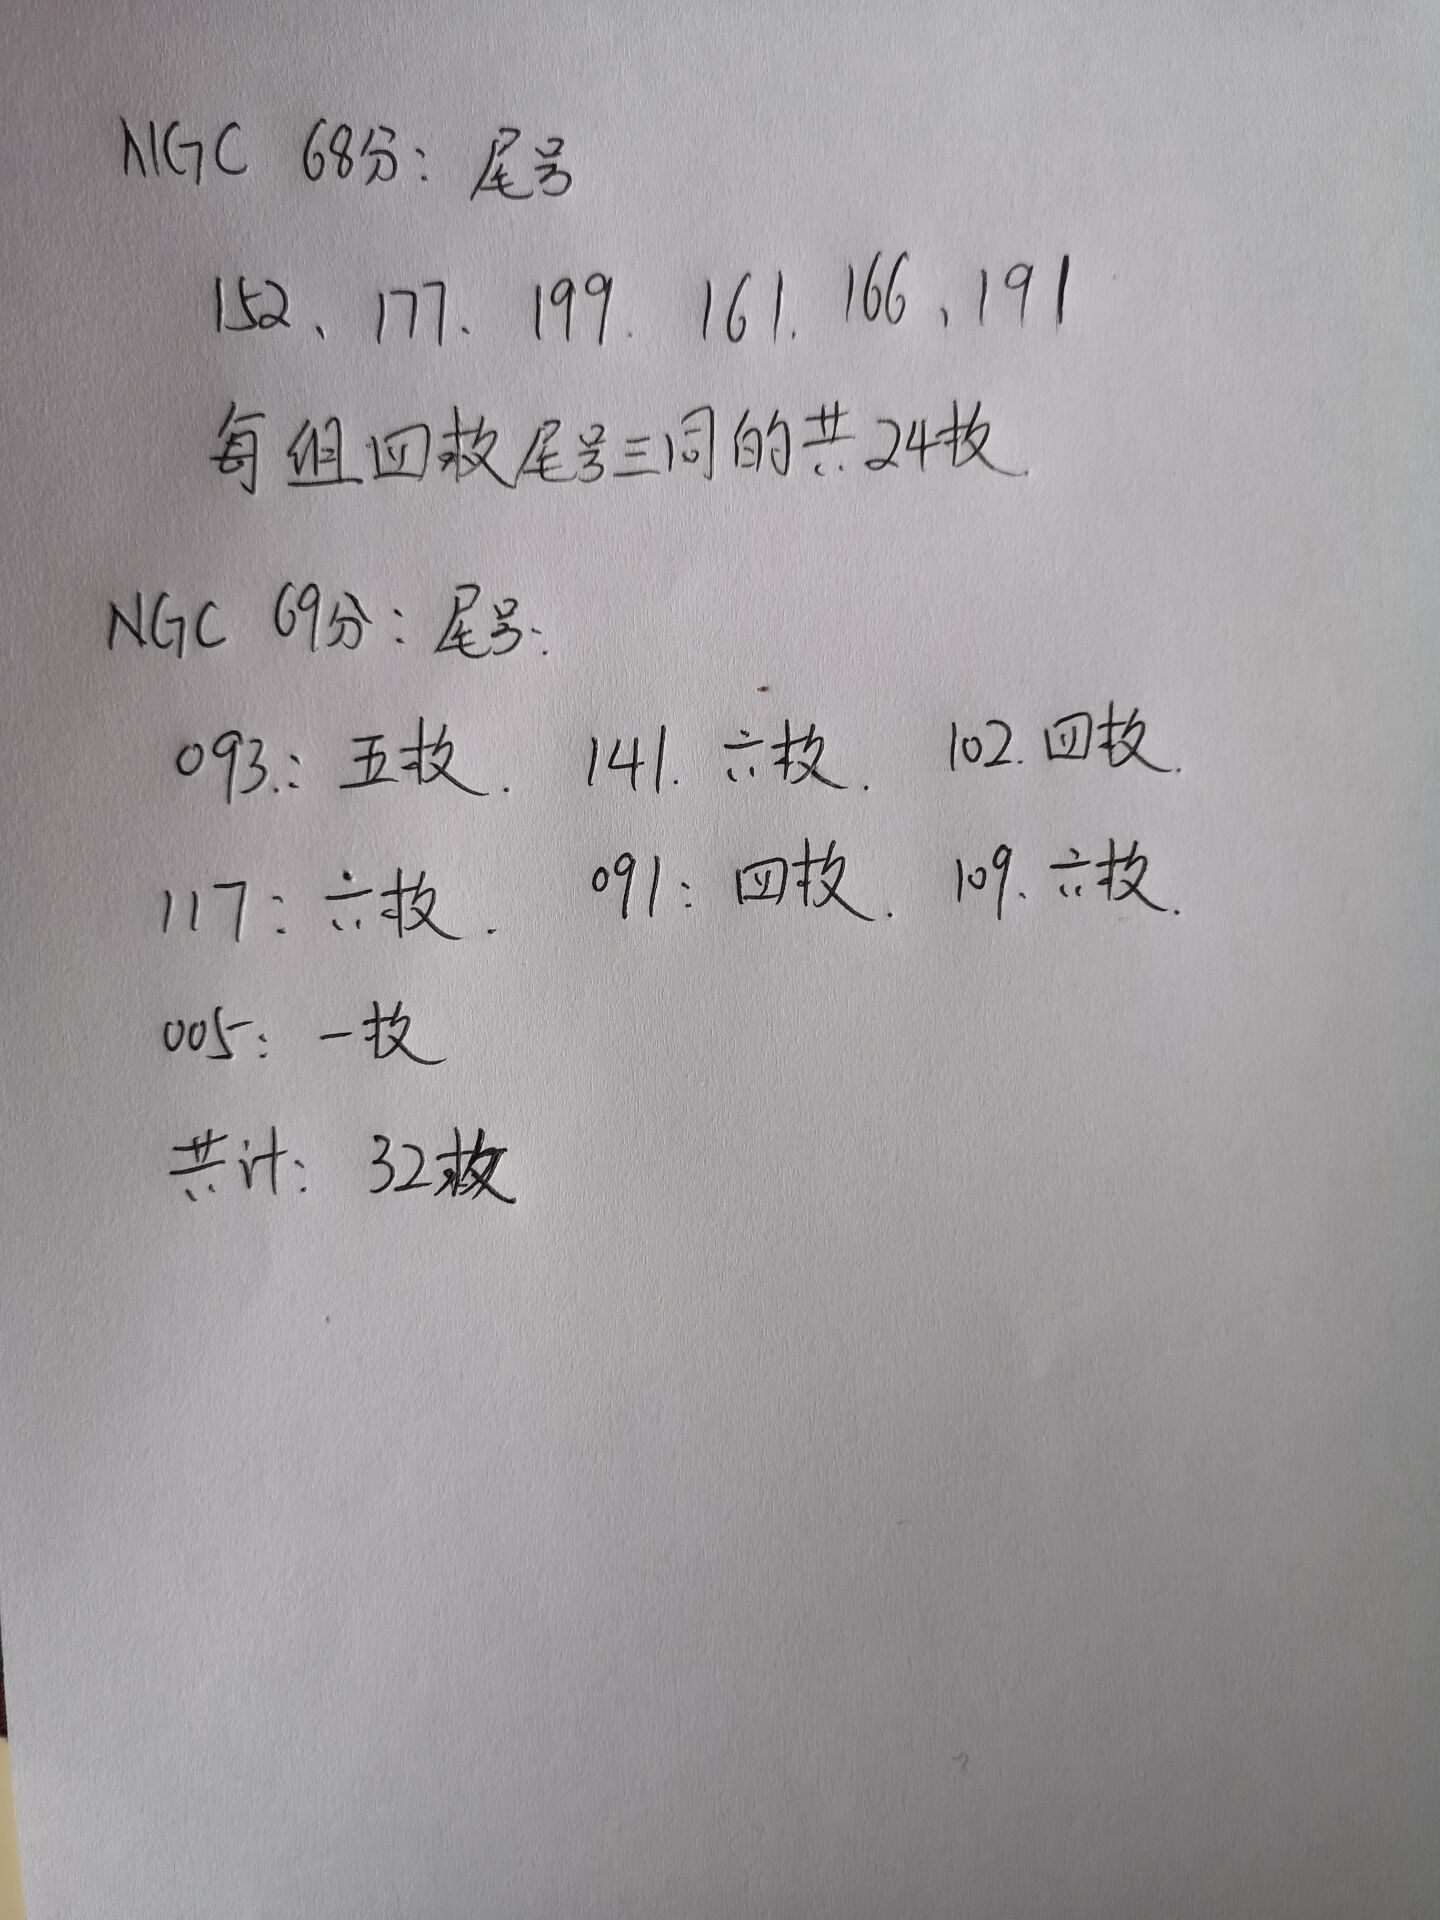 NGC 68分: 尾号
152、177、199. 161. 166、191
每组四枚尾号三同的共24枚.
NGC 69分: 尾号:
093.: 五枚. 141. 六枚. 102. 四枚.
117: 六枚. 091: 四枚. 109. 六枚.
005: 一枚
共计: 32枚